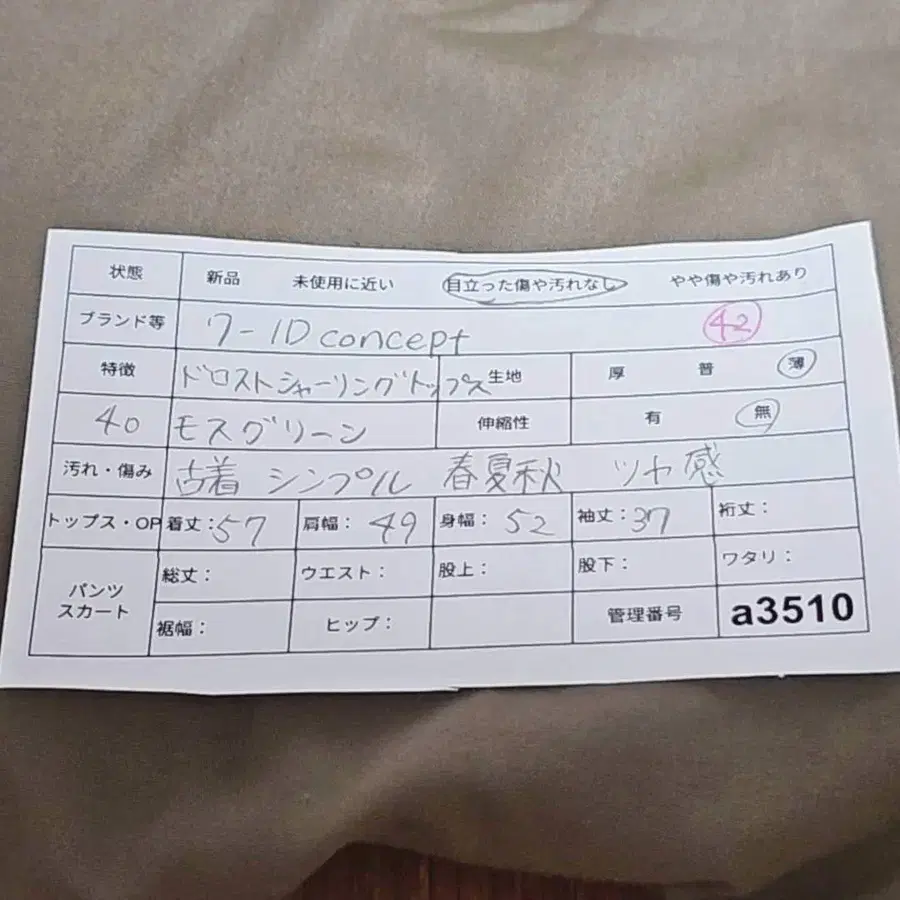 状態 新品 未使用に近い 目立った傷や汚れなし やや傷や汚れあり
ブランド等 7-ID concept 42
特徴 ドロストシャーリングトップス 生地 厚 普 薄
40 モスグリーン 伸縮性 有 無
汚れ・傷み 古着 シンプル 春夏秋 ツヤ感
トップス・OP 着丈:57 肩幅: 49 身幅: 52 袖丈:37 裄丈:
パンツ スカート 総丈: ウエスト: 股上: 股下: ワタリ:
裾幅: ヒップ: 管理番号 a3510